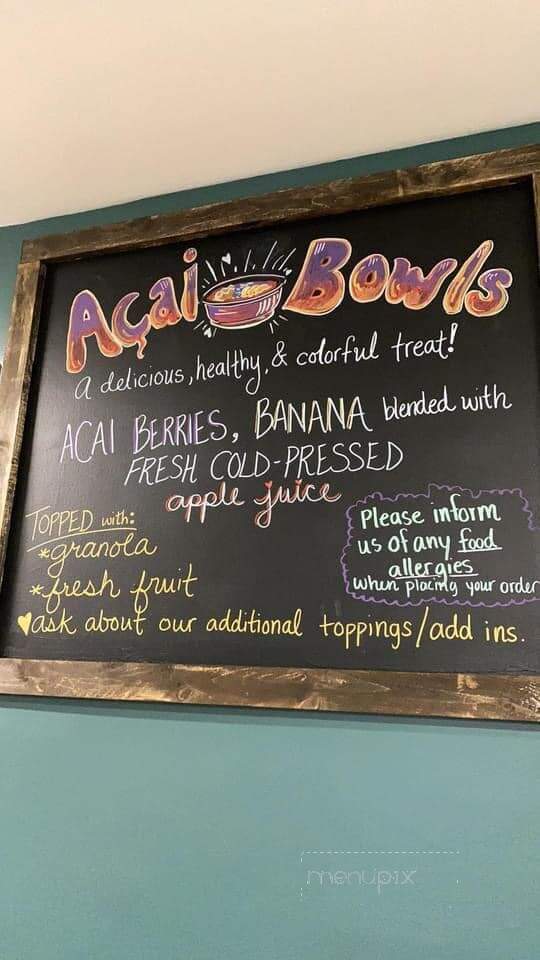 Açai Bowls
a delicious, healthy, & colorful treat!
ACAI BERRIES, BANANA blended with
FRESH COLD-PRESSED
apple juice
TOPPED with:
*granola
*fresh fruit
Please inform
us of any food
allergies
when placing your order
♥ask about our additional toppings/add ins.
menupix